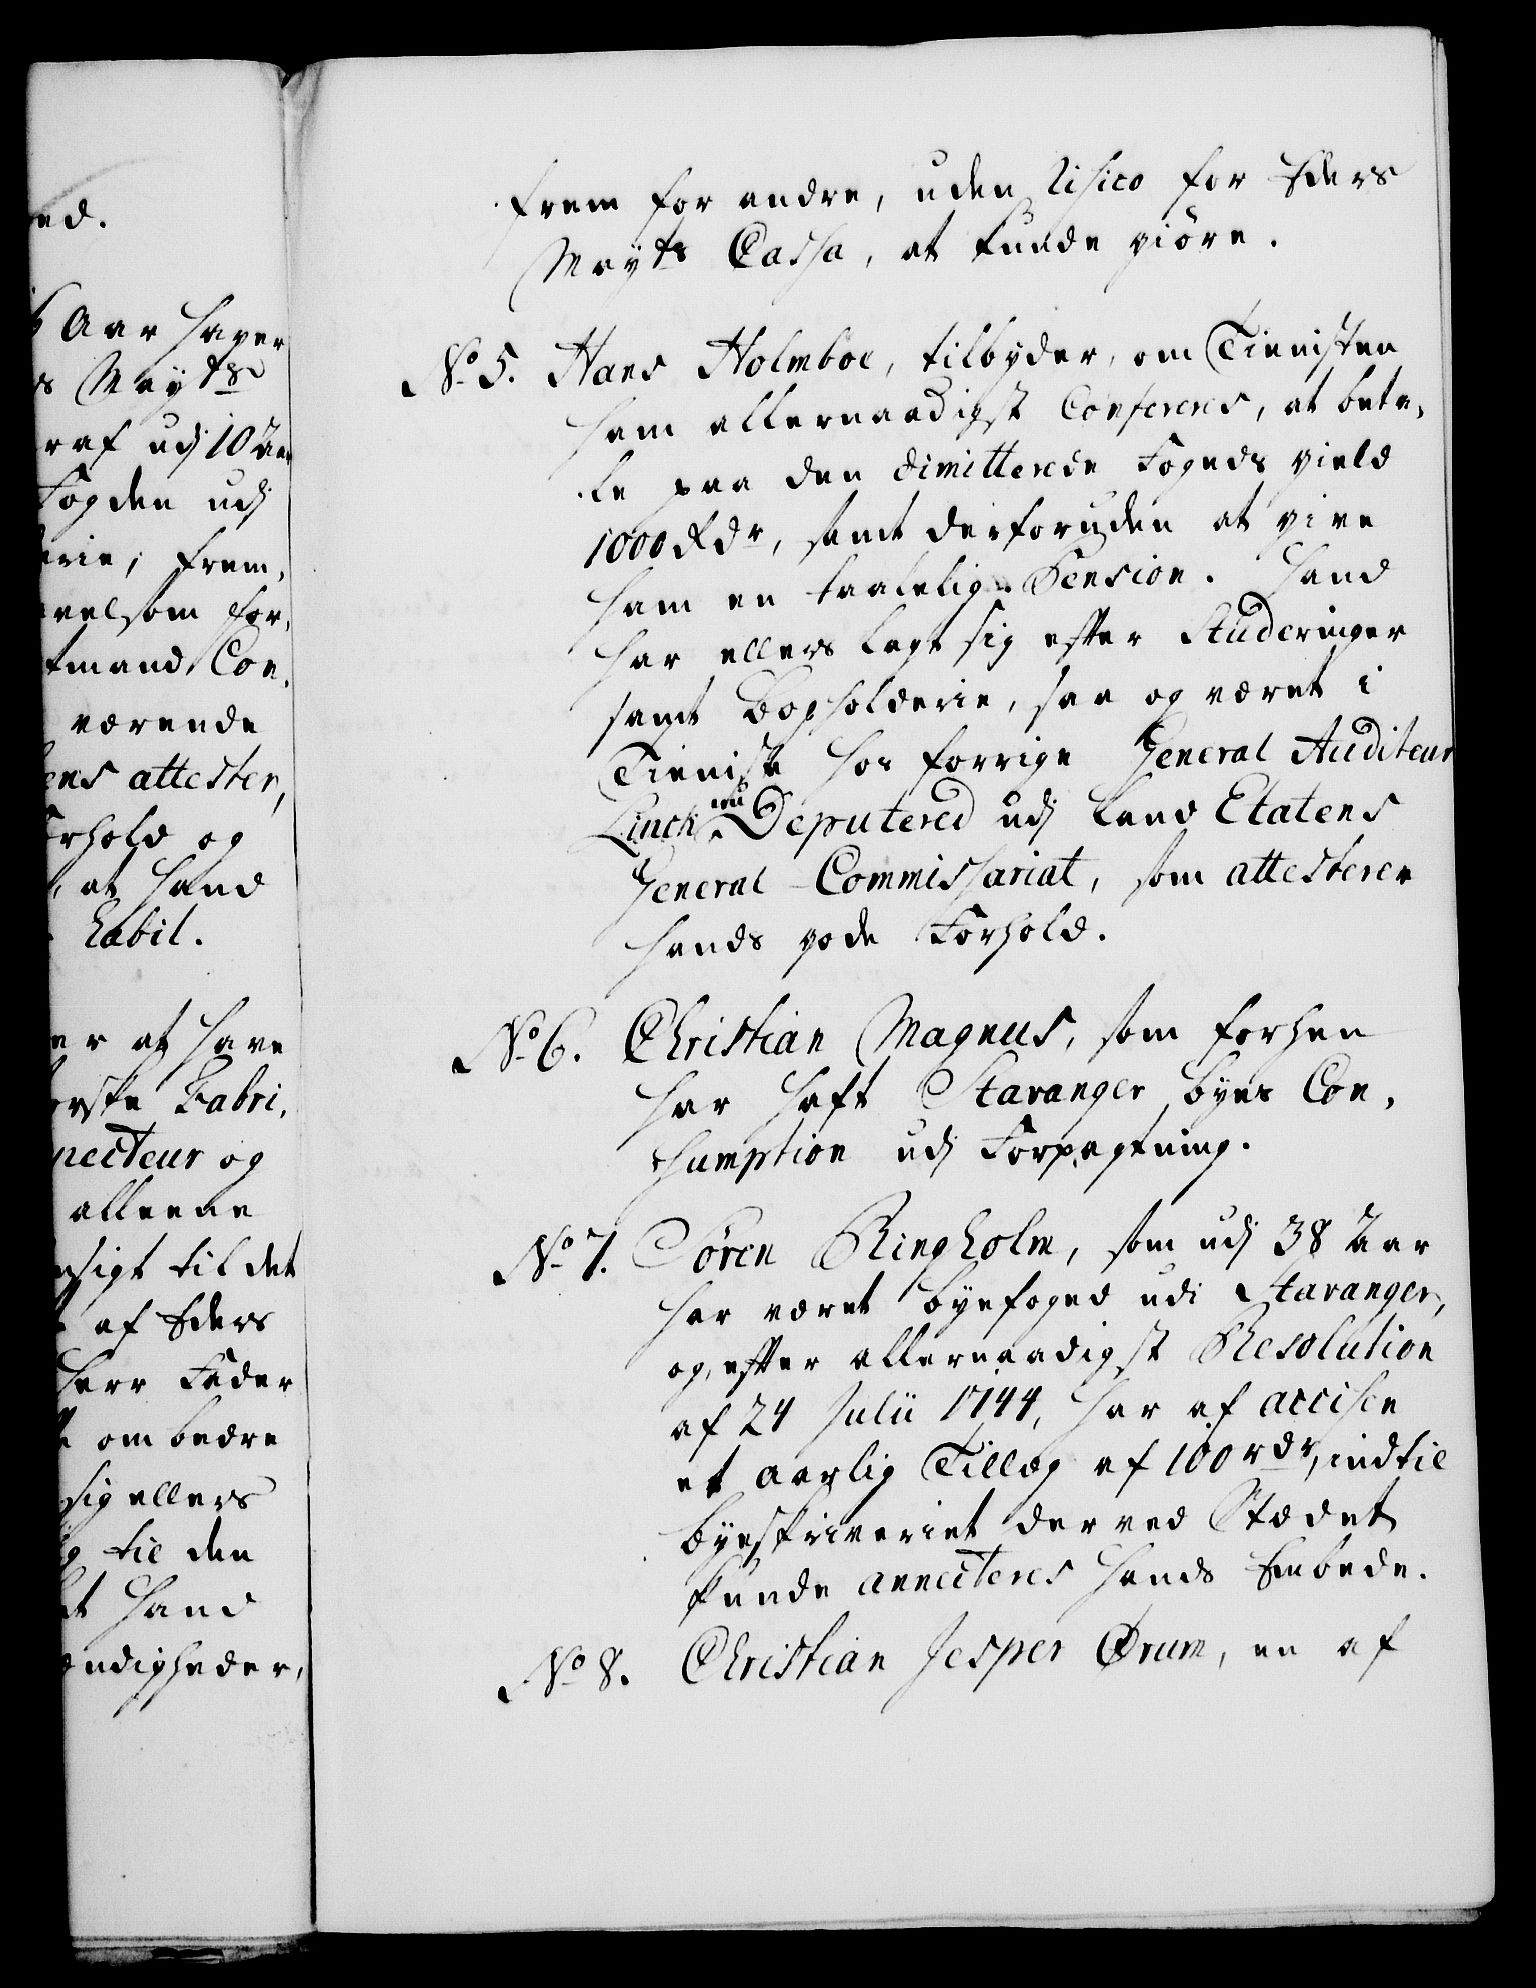 ed.
Aar haver
s Mayts
raf udj 10 Aar
Fogden udj
erie; frem,
velsom for,
tmand Con,
værende
ens attester,
Forhold og
at hand
habil.
er at have
erste Fabri,
necteur og
alleene
nsigt til det
af Eders
Herr Fader
om bedre
sig ellers
til den
hand
ændigheder,
frem for andre, uden risico for Eders
Mayts Cassa, at kunde giöre.
No 5. Hans Holmboe, tilbyder, om Tienisten
ham allernaadigst Confereres, at beta,
le paa den dimitterede Fogeds gield
1000 Rdr, samt desforuden at give
ham en taalelig Pension. Hand
har ellers lagt sig efter Studeringer
samt Bogholderie, saa og været i
Tieniste hos forrige General Auditeur
Linck nu Deputered udj Land Etatens
General-Commissariat, som attesterer
hands gode Forhold.
No 6. Christian Magnus, som forhen
har haft Stavanger byes Con,
sumption udj Forpagtning.
No 7. Sören Ringholm, som udj 38 Aar
har været byefoged udi Stavanger,
og, efter allernaadigst Resolution
af 24 Julii 1744, har af accisen
et aarlig Tillæg af 100 rdr, indtil
byeskriveriet der ved Stædet
kunde annecteres hands Embede.
No 8. Christian Jesper Ørum, en af